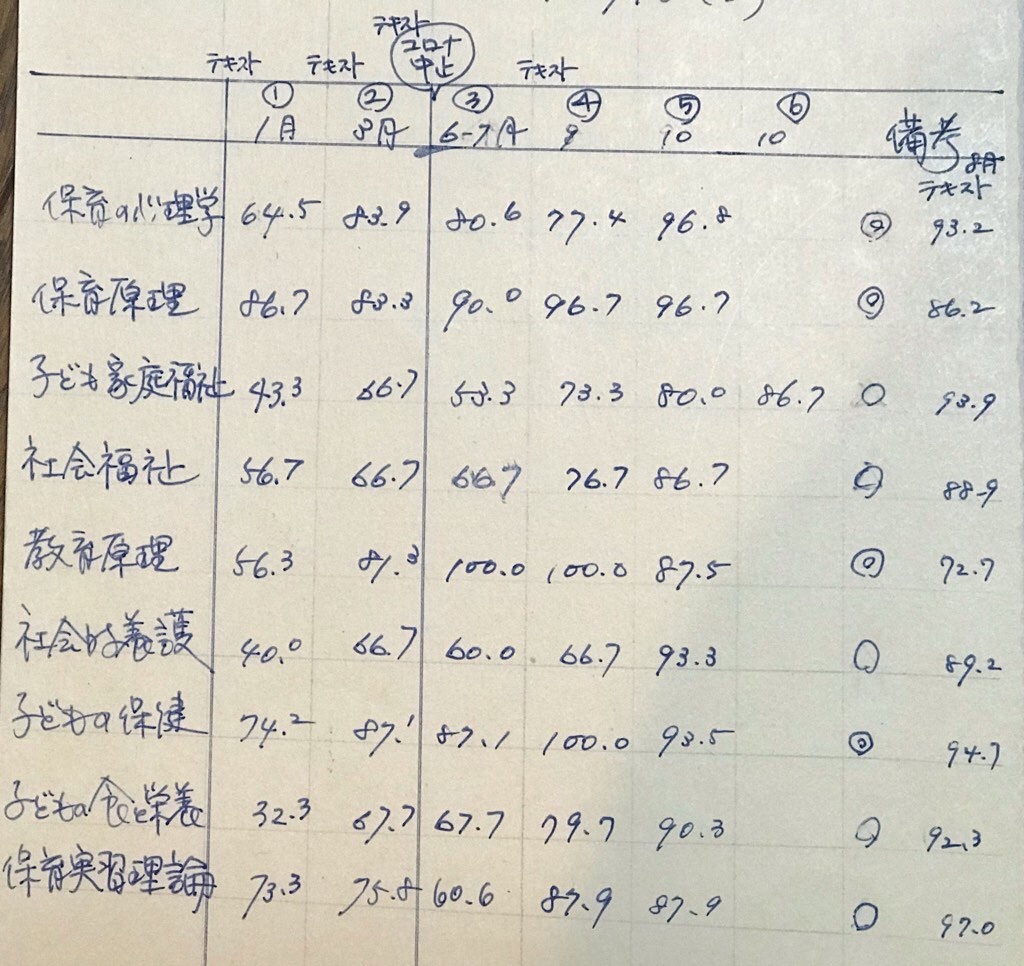 テキスト
テキスト テキスト コロナ中止 テキスト
① ② ③ ④ ⑤ ⑥ 備考
1月 8月 6-7月 9 10 10 8月
テキスト
保育の心理学 64.5 83.9 80.6 77.4 96.8 ◎ 93.2
保育原理 86.7 83.3 90.0 96.7 96.7 ◎ 86.2
子ども家庭福祉 43.3 66.7 53.3 73.3 80.0 86.7 ○ 93.9
社会福祉 56.7 66.7 66.7 76.7 86.7 ○ 88.9
教育原理 56.3 81.3 100.0 100.0 87.5 ◎ 72.7
社会的養護 40.0 66.7 60.0 66.7 93.3 ○ 89.2
子どもの保健 74.2 87.1 87.1 100.0 93.5 ◎ 94.7
子どもの食と栄養 32.3 67.7 67.7 79.7 90.3 ○ 92.3
保育実習理論 73.3 75.8 60.6 87.9 87.9 ○ 97.0